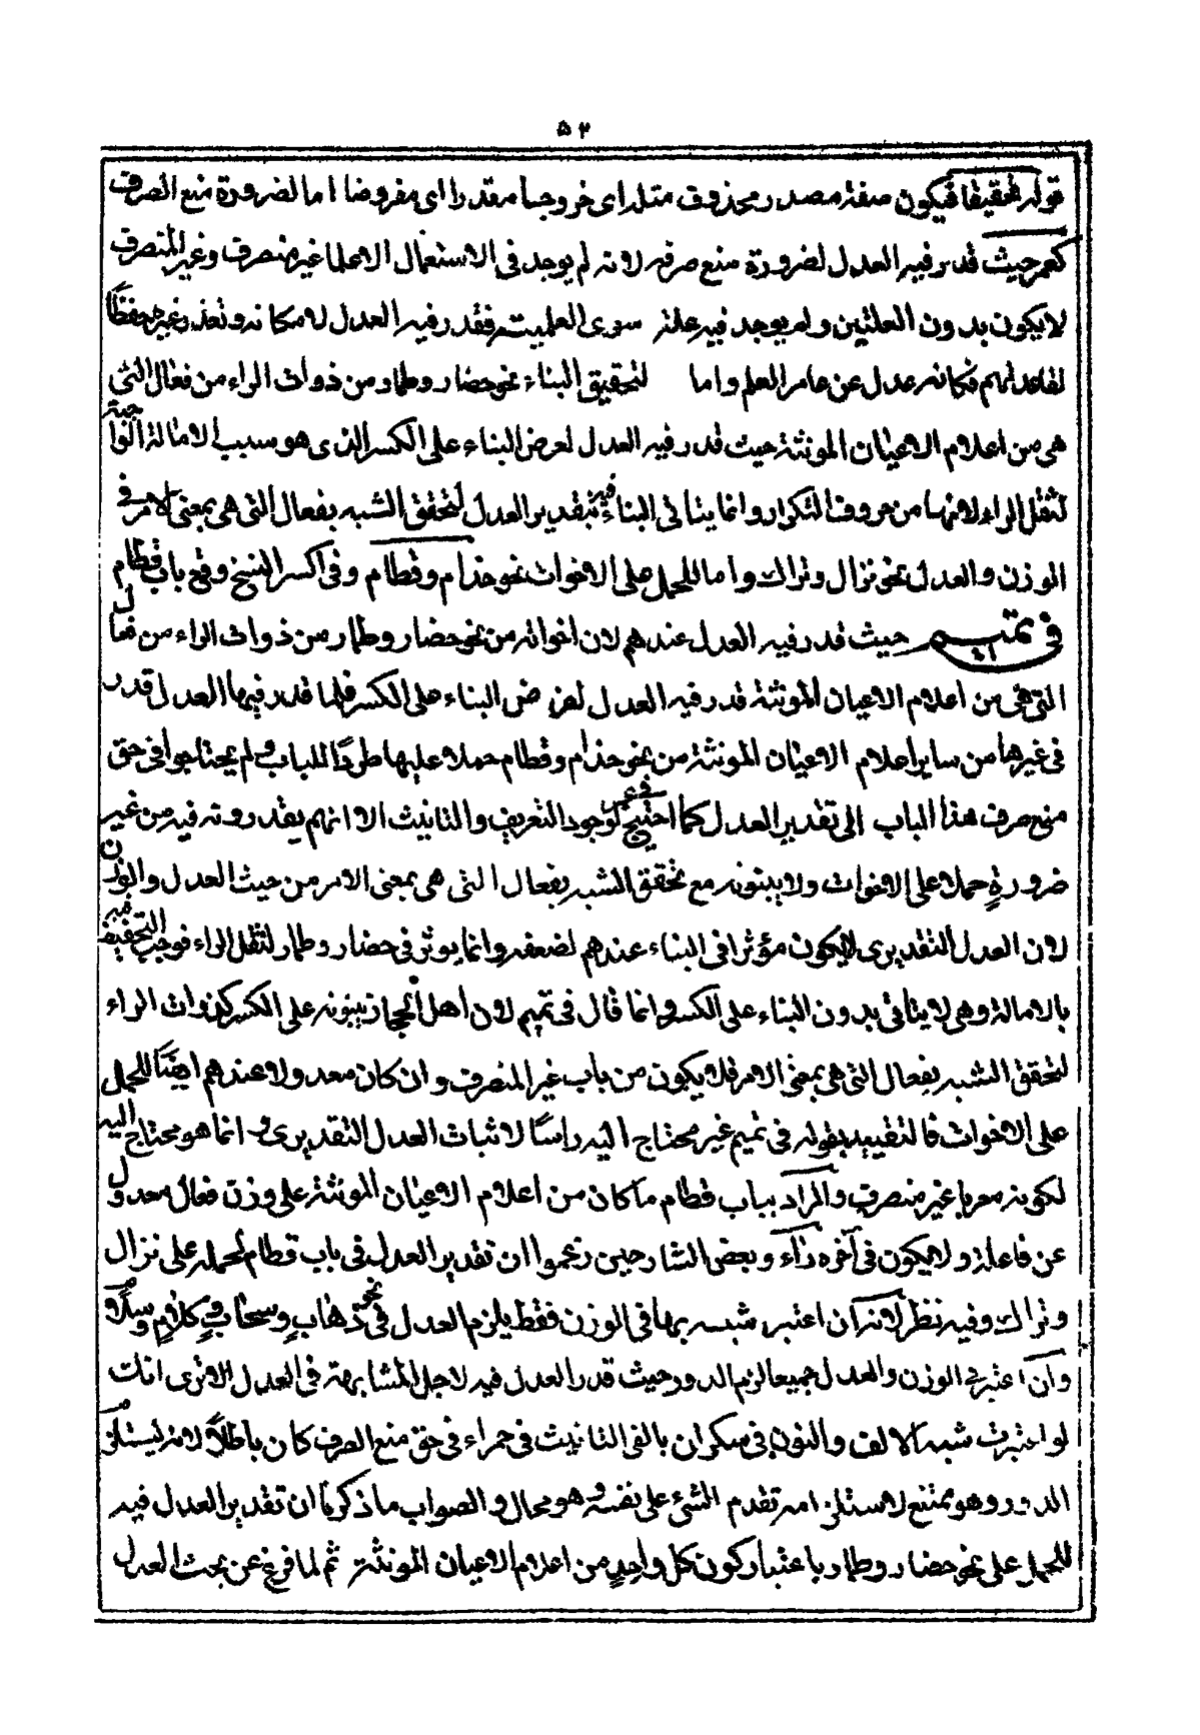 ٥٢
قوله تحقيقا فيكون صفة مصدر محذوف مثله اى خروجا مقدرا اى مفروضا اما لضرورة منع الصرف
كعمر حيث قدر فيه العدل لضرورة منع صرفه لانه لم يوجد فى الاستعمال الا علما غير منصرف وغير المنصرف
لا يكون بدون العلتين ولم يوجد فيه علة سوى العلمية فقدر فيه العدل لامكانه وتعذر غيره حفظًا
لقاعدتهم فكانه عدل عن عامر العلم واما لتحقيق البناء نحو حضار وطمار من ذوات الراء من فعال التى
هى من اعلام الاعيان المونثة حيث قدر فيه العدل لعرض البناء على الكسر الذى هو سبب الامالة الواجبة
لثقل الراء لانها من حروف التكرار وانما يتاتى البناء فيه بتقدير العدل لتحقق الشبه بفعال التى هى بمعنى الامر فى
الوزن والعدل نحو نزال وتراك واما للحمل على الاخوات نحو حذام وقطام وفى اكسر النسخ وقع باب قطام
فى تميم حيث قدر فيه العدل عندهم لان اخواته من نحو حضار وطمار من ذوات الراء من فعال
التى هى من اعلام الاعيان المونثة قدر فيه العدل لعرض البناء على الكسر فلما قدر فيها العدل قدر
فى غيرها من ساير اعلام الاعيان المونثة من نحو حذام وقطام حملا عليها طردًا للباب ولم يحتاجوا فى حق
منع صرف هذا الباب الى تقدير العدل كما احتيج فى عمر لوجود التعريف والتانيث الا انهم يقدرونه فيه من غير
ضرورةٍ حملا على الاخوات ولا يبنونه مع تحقق الشبه بفعال التى هى بمعنى الامر من حيث العدل والوزن
لان العدل التقديرى لا يكون مؤثرا فى البناء عندهم لضعفه وانما يوثر فى حضار وطمار لثقل الراء فوجب التخفيف فيه
بالامالة وهى لا يتاتى بدون البناء على الكسر وانما قال فى تميم لان اهل الحجاز يبنونه على الكسر كذوات الراء
لتحقق الشبه بفعال التى هى بمعنى الامر فلا يكون من باب غير المنصرف وان كان معدولا عندهم ايضًا للحمل
على الاخوات فالتقييد بقوله فى تميم غير محتاج اليه راسًا لاثبات العدل التقديرى وانما هو محتاج اليه
لكونه معربا غير منصرف والمراد بباب قطام ما كان من اعلام الاعيان المونثة على وزن فعال معدول
عن فاعلة ولا يكون فى آخره راء وبعض الشارحين زعموا ان تقدير العدل فى باب قطام لحمله على نزال
وتراك وفيه نظر لانه ان اعتبر شبهه بها فى الوزن فقط يلزم العدل فى نحو ذهابٍ وسحابٍ وكلامٍ وسلام
وان اعتبر فى الوزن والعدل جميعا لزم الدور حيث قدر العدل فيه لاجل المشابهة فى العدل الا ترى انك
لو اعتبرت شبه الالف والنون فى سكران بالفى التانيث فى حمراء فى حق منع الصرف كان باطلًا لانه ليستلزم
الدور وهو ممتنع لاستلزامه تقدم الشئ على نفسه وهو محال والصواب ما ذكرنا ان تقدير العدل فيه
للحمل على نحو حضار وطمار باعتبار كون كل واحدٍ من اعلام الاعيان المونثة ثم لما فرغ عن بحث العدل